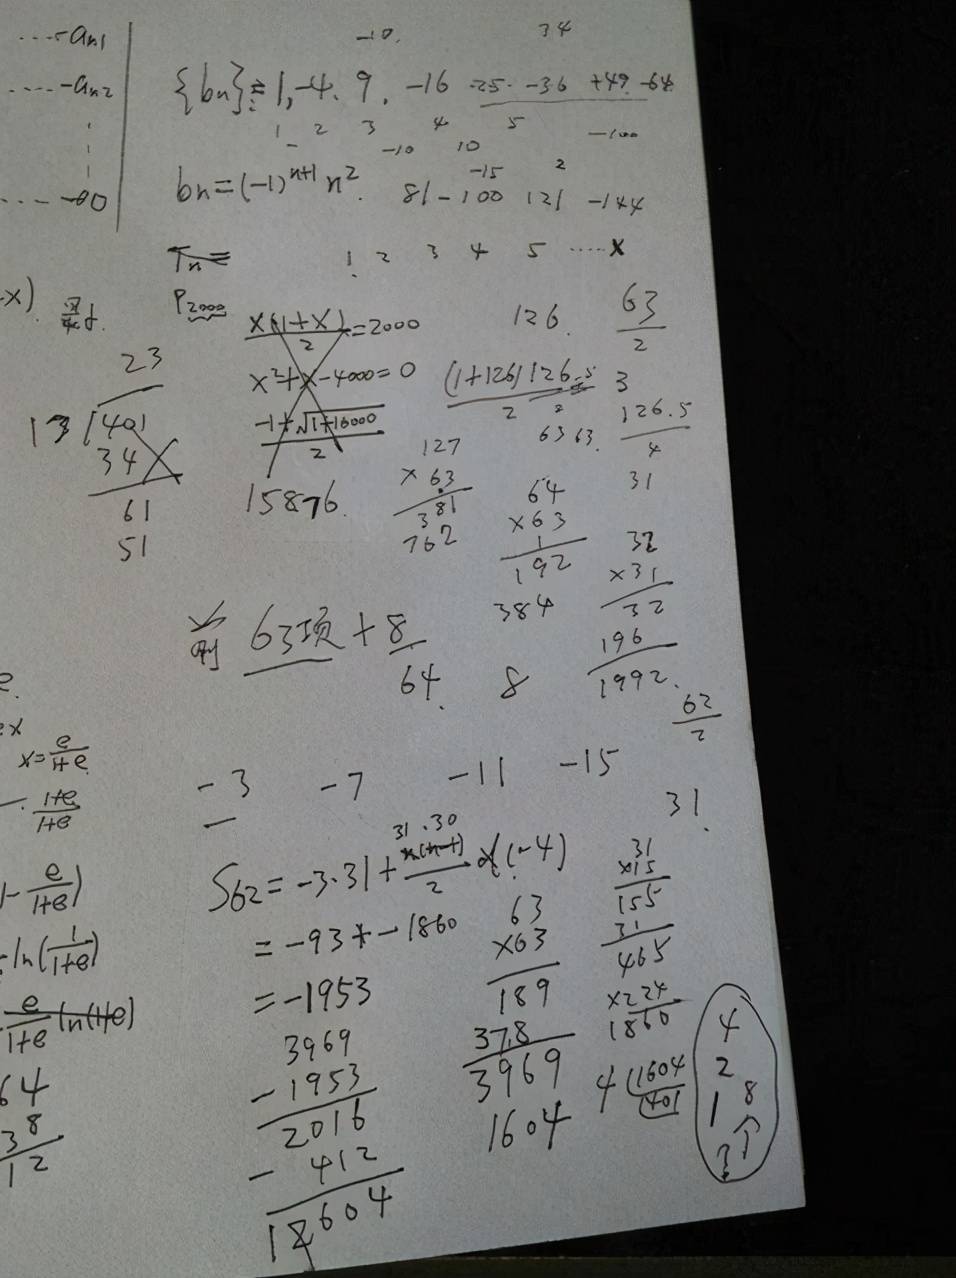 ....-an1
....-an2
....-00
-10. 34
{bn} = 1, -4. 9. -16 25. -36 +49. -64
1 2 3 4 5
-10 10 -100
-15 2
bn=(-1)^{n+1} n^2. 81-100 121 -144
Tn=
1 2 3 4 5 ....x
P2000
-x).
x(1+x)/2=2000
x^2+x-4000=0
-1+√1+16000/2
15876.
126. 63/2
(1+126)126/2
3
126.5/4
63 63.
31
23
13 401
34
61
51
127
×63
381
762
64
×63
1
192
384
32
×31
32
196
1992.
前 63项+8
64. 8
62/2
31.
-3 -7 -11 -15
x=e/1+e
1+e/1+e
-e/1+e)
ln(1/1+e)
e/1+e ln(1+e)
64
38
12
31.30
S62=-3.31+n(n-1)/2 ×(-4)
=-93+-1860
=-1953
3969
-1953
2016
-412
1604
63
×63
189
378
3969
1604
31
×15
155
31
465
×4
1860
4 1604
401
4
2
1 8个
3